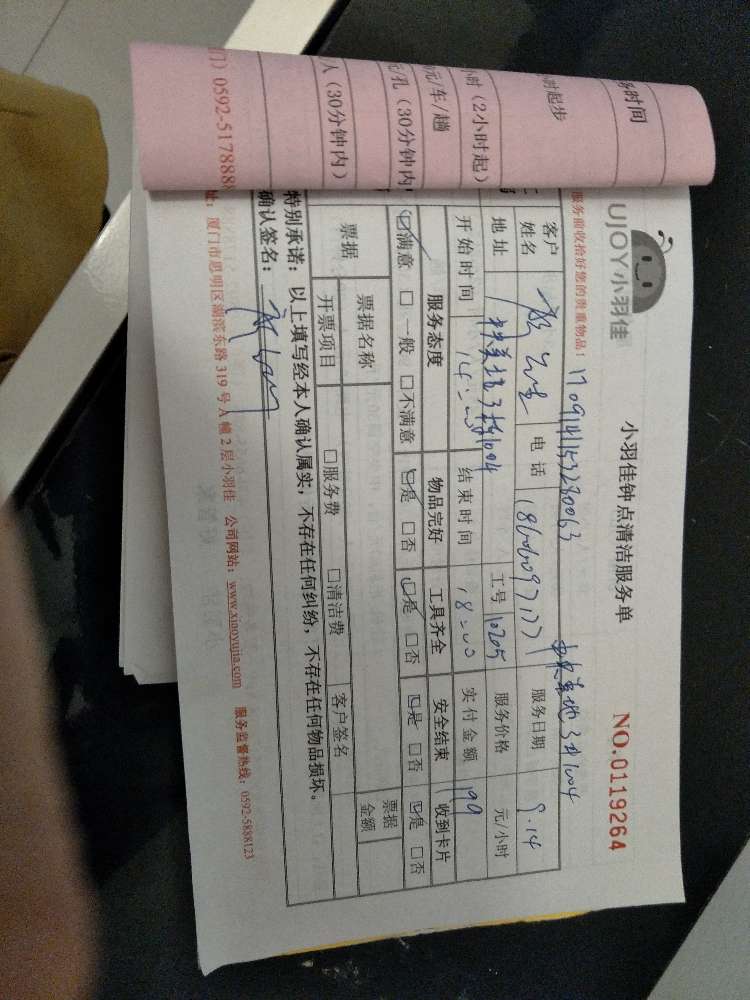 务时间
时起步
时（2小时起）
元/车/趟
元/孔（30分钟内
人（30分钟内）
UJOY小羽佳
小羽佳钟点清洁服务单
NO.0119264
服务前收拾好您的贵重物品！
170914153280063
3栋1004
客户姓名 电话 服务日期 9.14
地址 3栋1004 工号 10205 服务价格 元/小时
开始时间 14: 结束时间 18:00 实付金额 99
服务态度 物品完好 工具齐全 安全结束 收到卡片
☑满意 □一般 □不满意 ☑是 □否 ☑是 □否 ☑是 □否 ☑是 □否
票据 票据名称 客户签名 票据金额
开票项目 □服务费 □清洁费
特别承诺：以上填写经本人确认属实，不存在任何纠纷，不存在任何物品损坏。
确认签名：
门）0592-5178888
址：厦门市思明区湖滨东路 319 号 A 幢 2 层小羽佳 公司网站：www.xiaoyujia.com 服务监督热线：0592-5888123